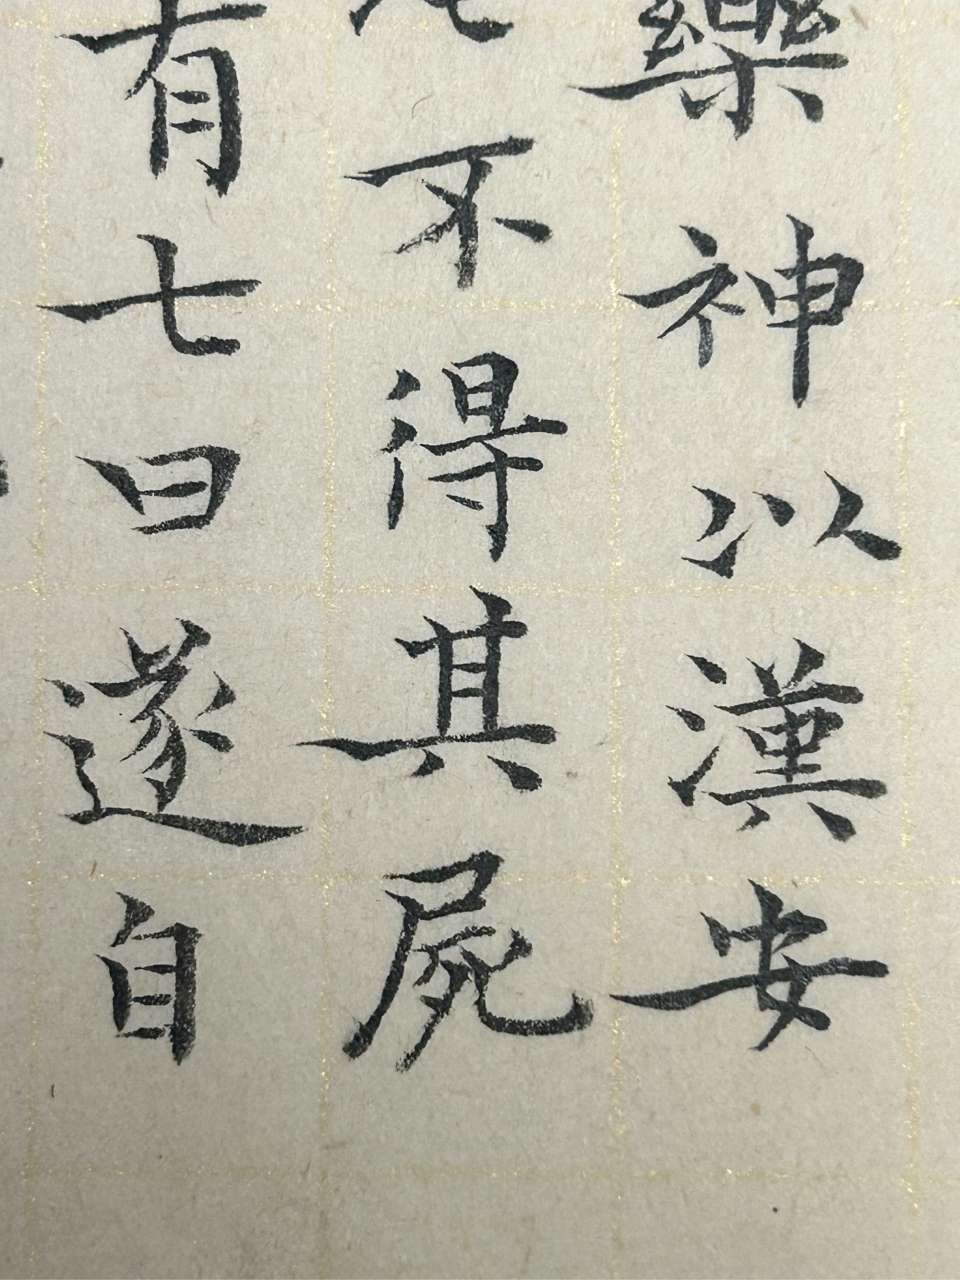 樂神以漢安
不得其屍
有七日遂自